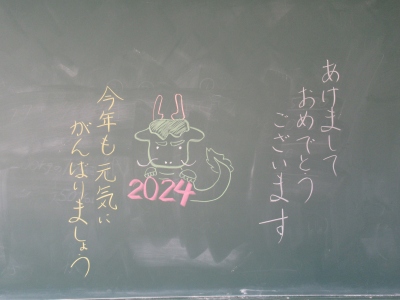 あけまして
おめでとう
ございます
2024
今年も元気に
がんばりましょう